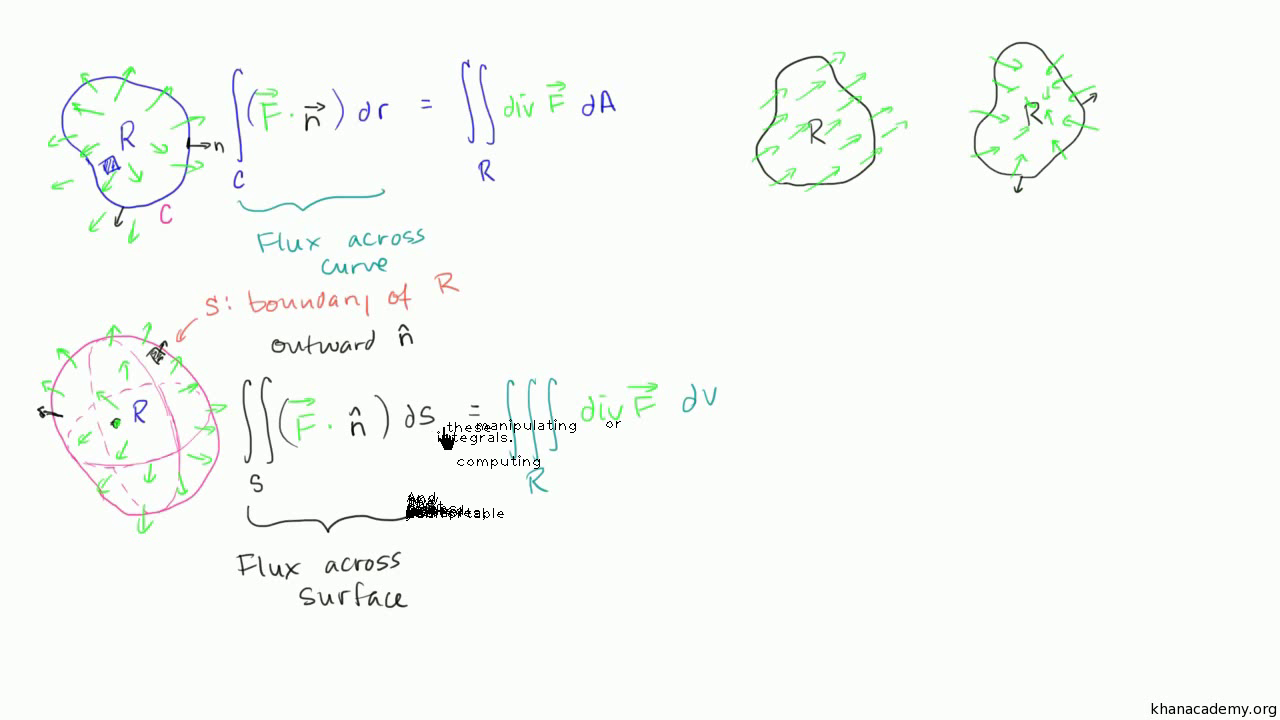 R
n
C
∫ (F⃗ · n⃗) dr = ∬ div F⃗ dA
C R
Flux across
curve
S: boundary of R
outward n̂
R
∬ (F⃗ · n̂) dS = ∭ div F⃗ dV
S R
these manipulating or
integrals.
computing
And
Flux across
surface
R
R
khanacademy.org